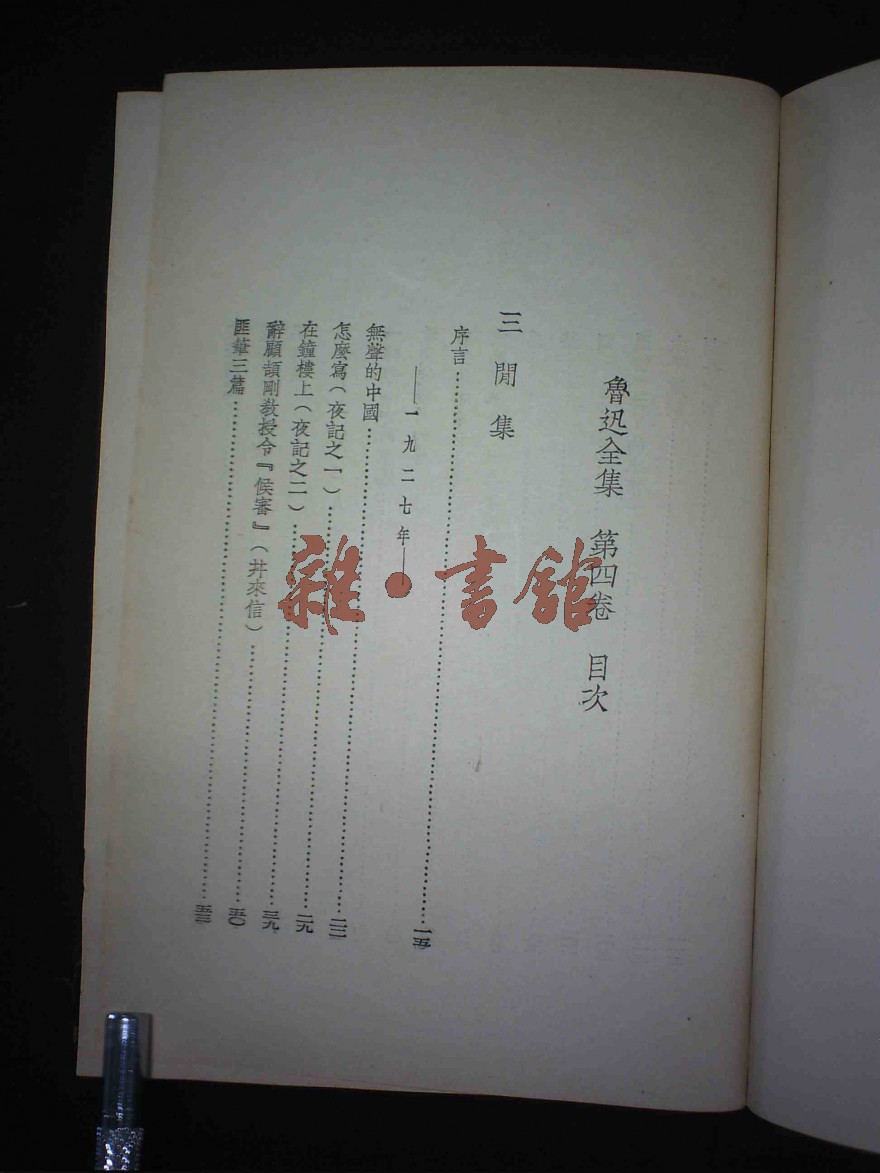 魯迅全集 第四卷 目次
三閒集
序言……一五
——一九二七年——
無聲的中國……二二
怎麼寫(夜記之一)……二九
在鐘樓上(夜記之二)……三九
辭顧頡剛教授令『候審』(并來信)……五〇
匪筆三篇……五三
雜·書館